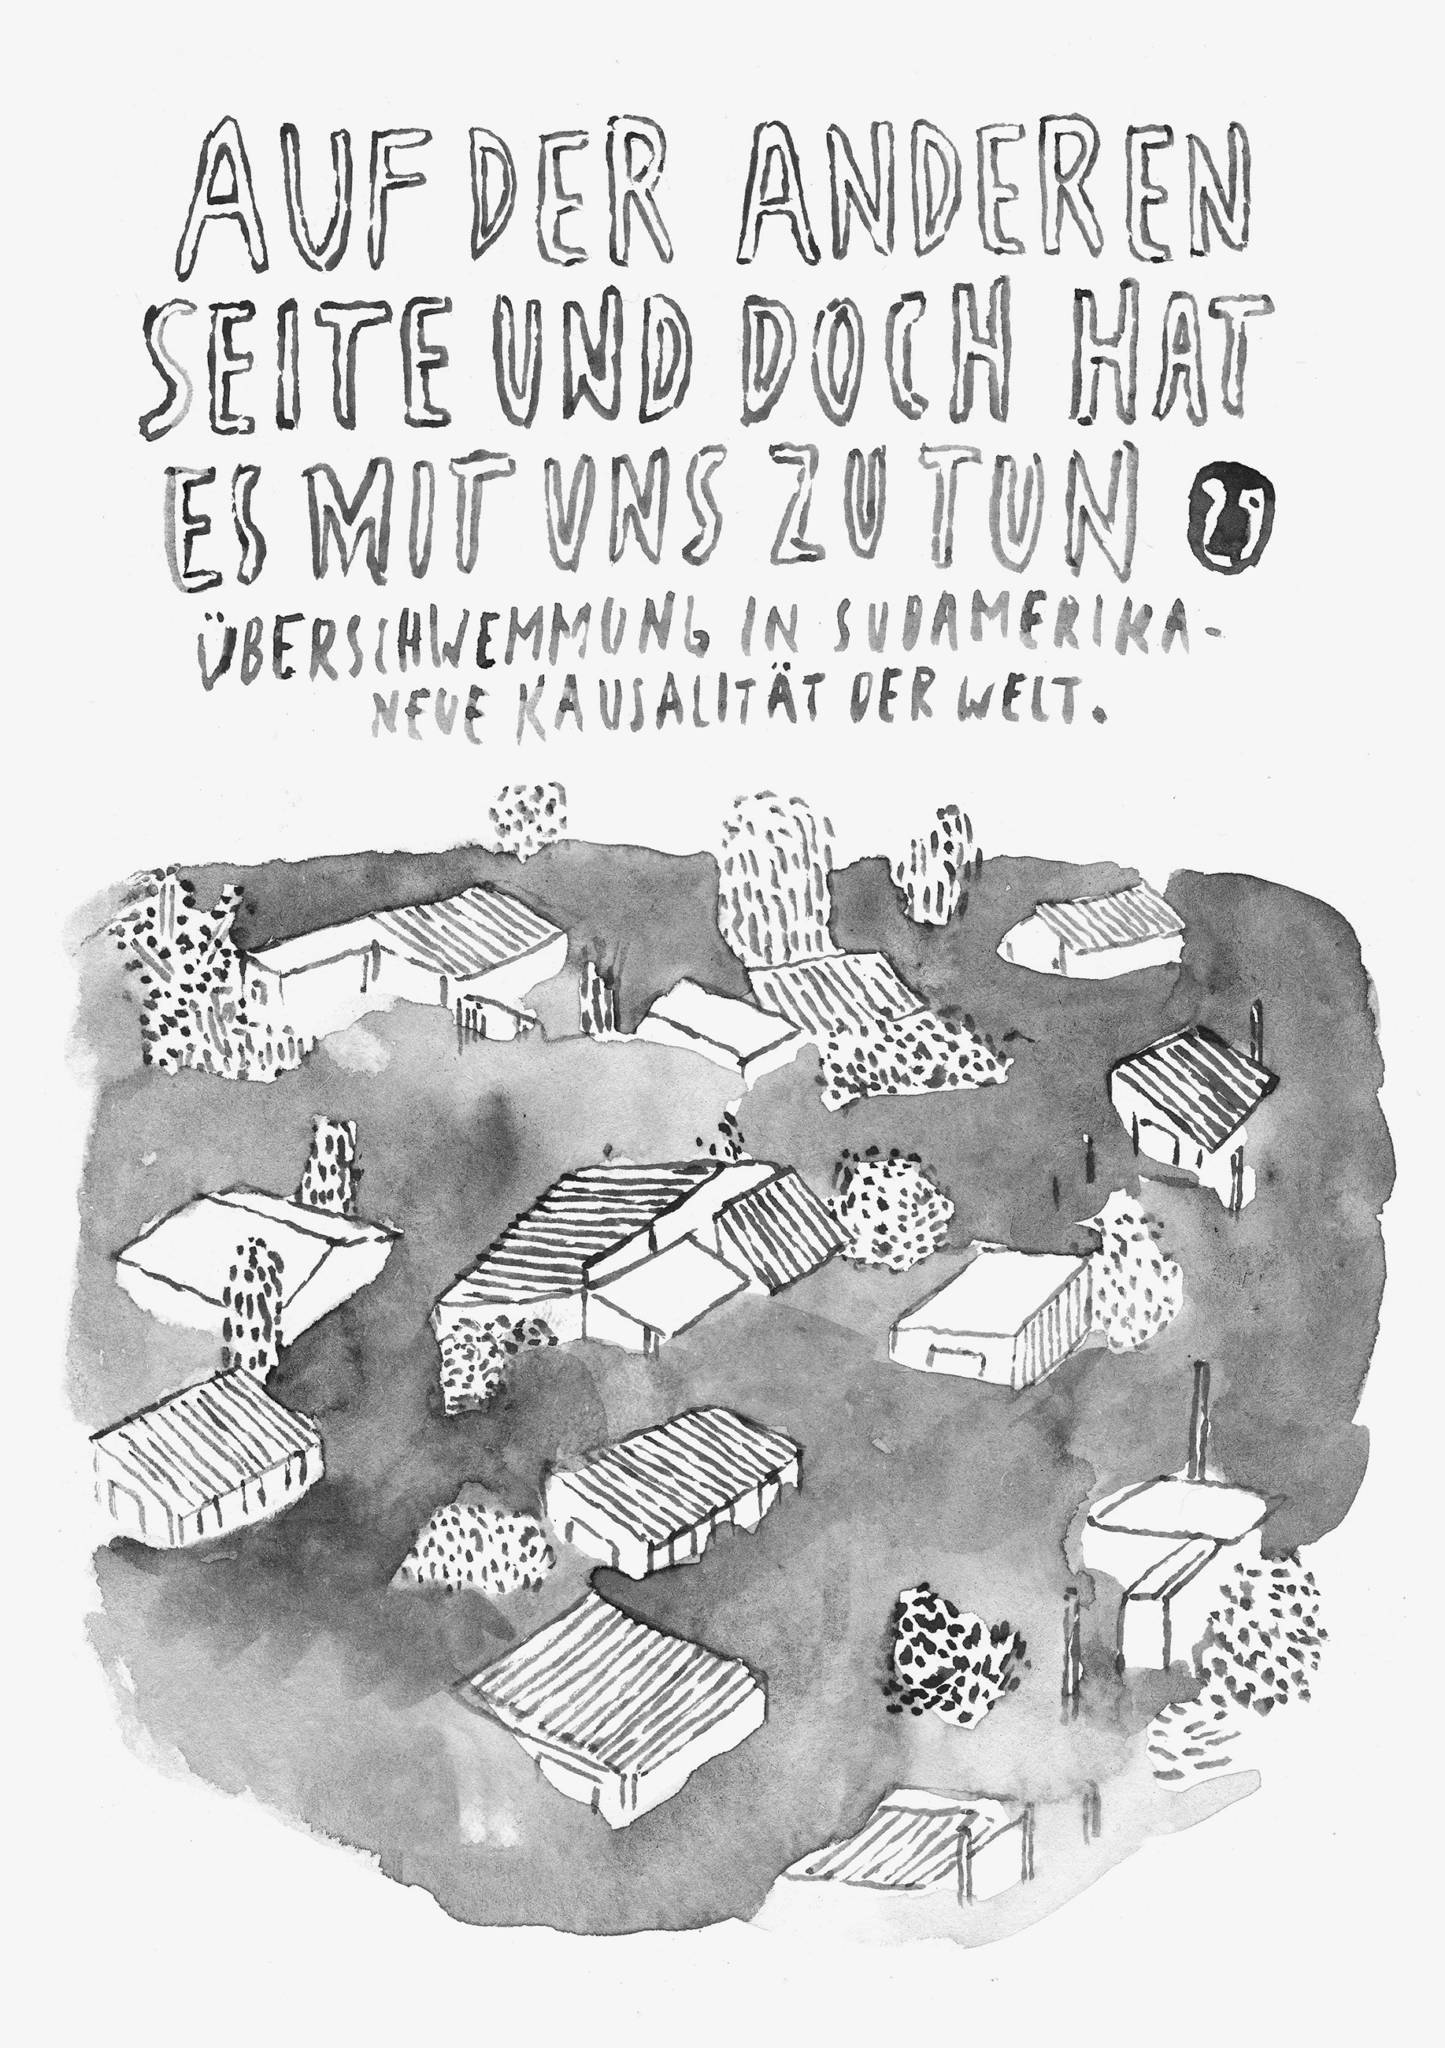 AUF DER ANDEREN
SEITE UND DOCH HAT
ES MIT UNS ZU TUN
ÜBERSCHWEMMUNG IN SUDAMERIKA-
NEUE KAUSALITÄT DER WELT.